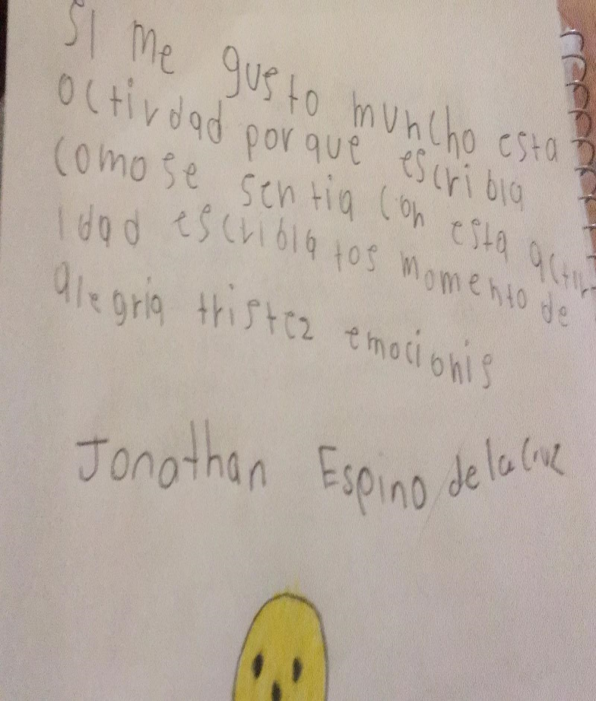 SI me gusto muncho esta
octividad porque escribia
como se sentia con esta activ
idad escribia tos momento de
alegria tristez emocionis
Jonathan Espino de la Cruz